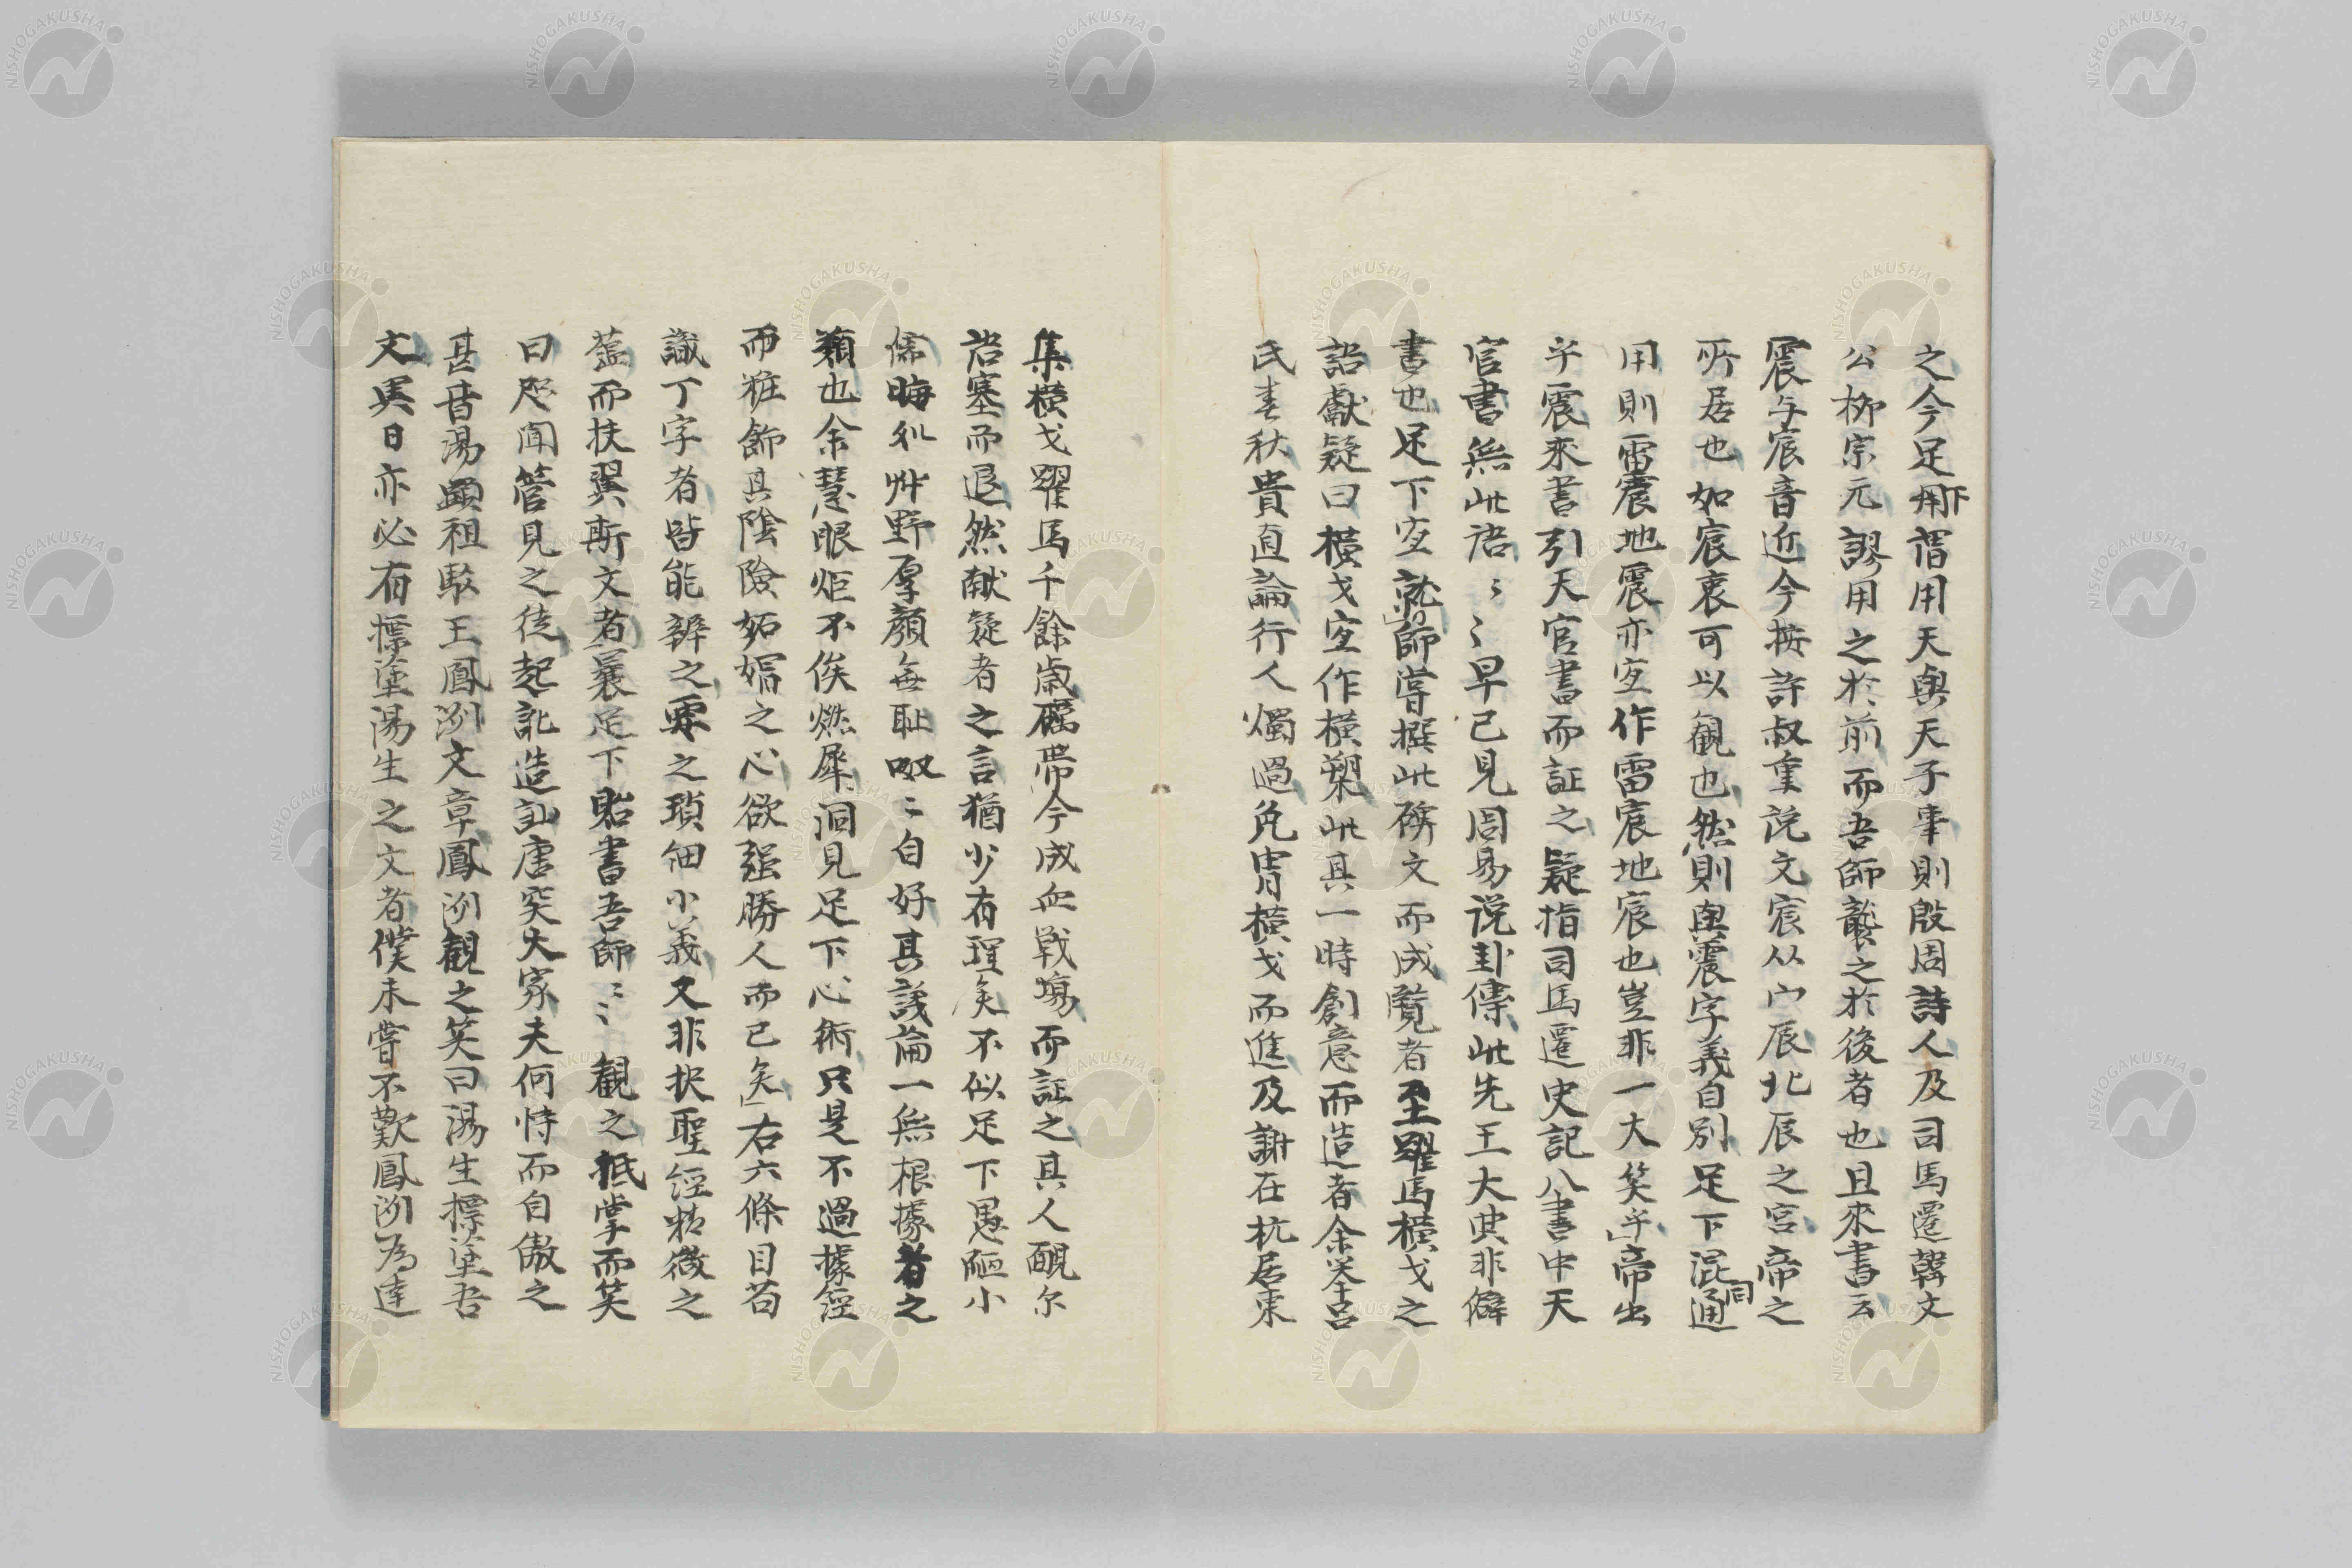 之今足下謂用天與天子事則殷周詩人及司馬遷韓文
公柳宗元謬用之於前而吾師襲之於後者也且來書云
震与宸音近今按許叔重説文宸从宀辰北辰之宮帝之
所居也如宸衷可以観也然則與震字義自別足下混同通
用則雷震地震亦宜作雷宸地宸也豈非一大笑乎」帝出
乎震來書引天官書而証之疑指司馬遷史記八書中天
官書無此語〻〻早已見周易説卦傳此先王大典非僻
書也足下宜就」師嘗撰此碑文而成覧者至躍馬横戈之
語獻疑曰横戈宜作横槊此其一時創意而造者余答曰
氏春秋貴直論行人燭過免冑横戈而進及謝在杭居東
集横戈躍馬千餘歳礪帶今成血戦場而証之其人覼尔
語塞而退然献疑者之言猶少有理矣不似足下愚陋小
儒晦処艸野厚顔無耻呶〻自好其議論一無根據者之
類也余慧眼炬不俟燃犀洞見足下心術只是不過據經
而粧飾其陰険妬媢之心欲強勝人而已矣」右六條目苟
識丁字者皆能辨之要之瑣細小義又非抉聖經精微之
蘊而扶翼斯文者」曩足下貽書吾師〻〻観之抵掌而笑
曰咫聞管見之徒起訛造訕唐突大家夫何恃而自傲之
甚昔湯顕祖駁王鳳洲文章鳳洲観之笑曰湯生標塗吾
文異日亦必有標塗湯生之文者僕未嘗不歎鳳洲為達
NISHOGAKUSHA